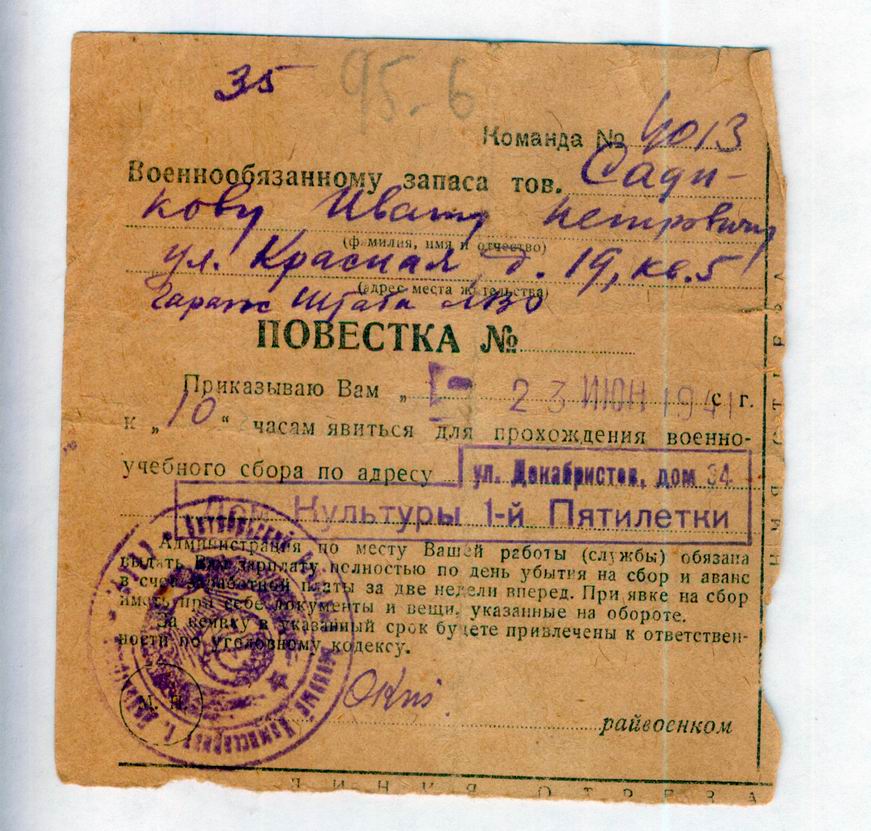 35 95-6
Команда № 4013
Военнообязанному запаса тов. Сади-
кову Ивану Петровичу
(фамилия, имя и отчество)
ул. Красная, д. 19, кв. 5
(адрес места жительства)
гараж Штаба ЛВО
ПОВЕСТКА №
Приказываю Вам „ 23 ИЮН 1941 с. г.
к „10“ часам явиться для прохождения военно-
учебного сбора по адресу ул. Декабристов, дом 34
Дом Культуры 1-й Пятилетки
Администрация по месту Вашей работы (службы) обязана
выдать Вам зарплату полностью по день убытия на сбор и аванс
в счет заработной платы за две недели вперед. При явке на сбор
иметь при себе документы и вещи, указанные на обороте.
За неявку в указанный срок будете привлечены к ответствен-
ности по уголовному кодексу.
М. П.
райвоенком
ЛИНИЯ ОТРЕЗА
ЛИНИЯ ОТРЕЗА